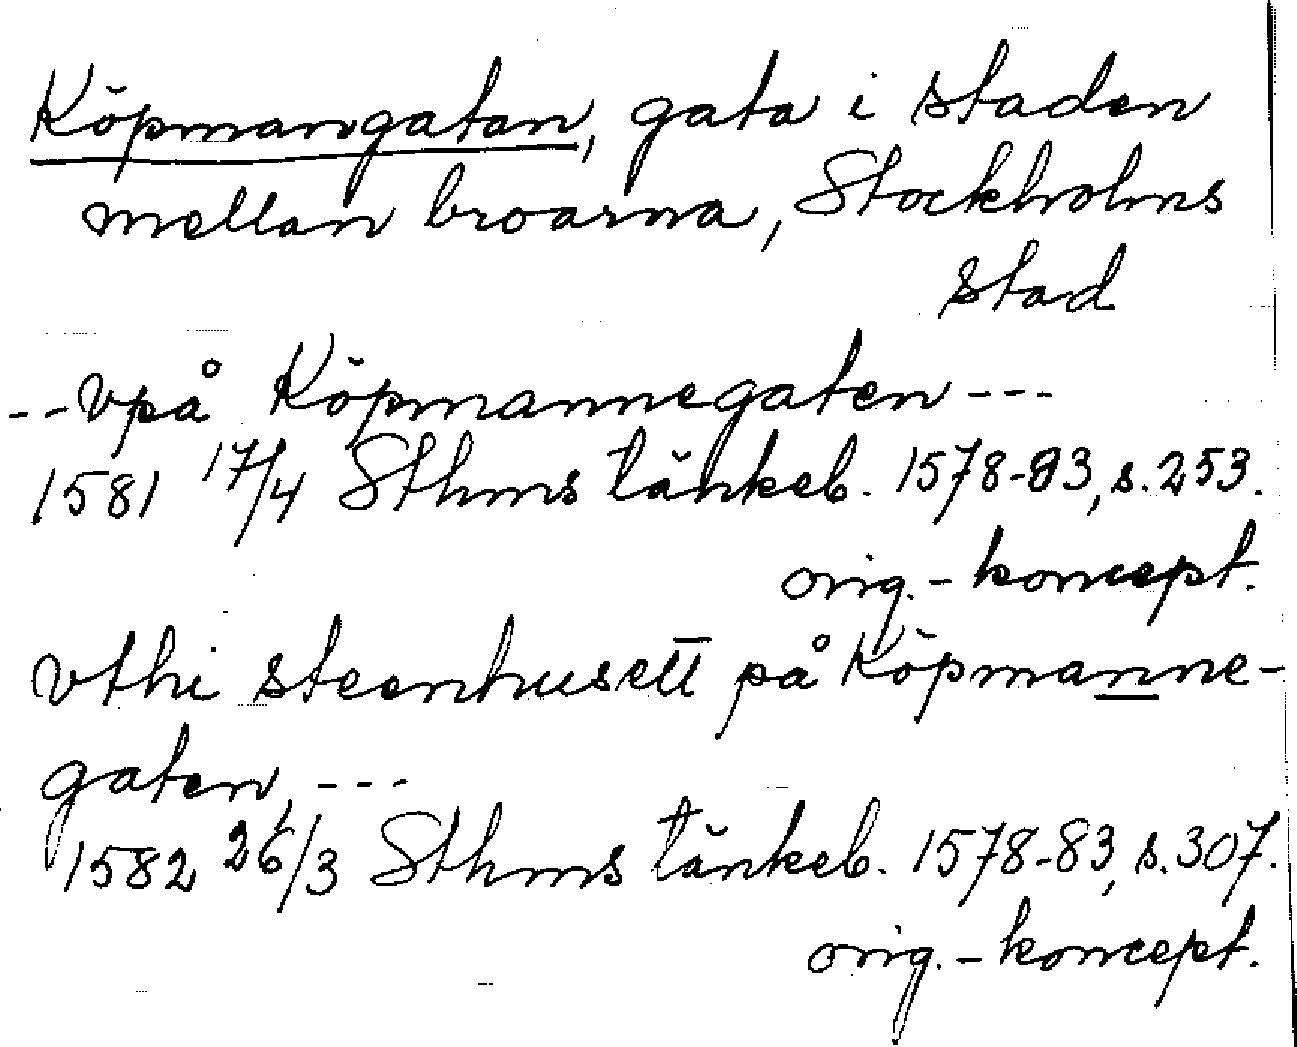 Köpmangatan, gata i staden
mellan broarna, Stockholms
stad
--vpå Köpmannegaten---
1581 17/4 Sthms tänkeb. 1578-83, s. 253.
orig.-koncept.
vthi steenhusett på Köpmanne-
gaten, ---
1582 26/3 Sthms tänkeb. 1578-83, s. 307.
orig.-koncept.